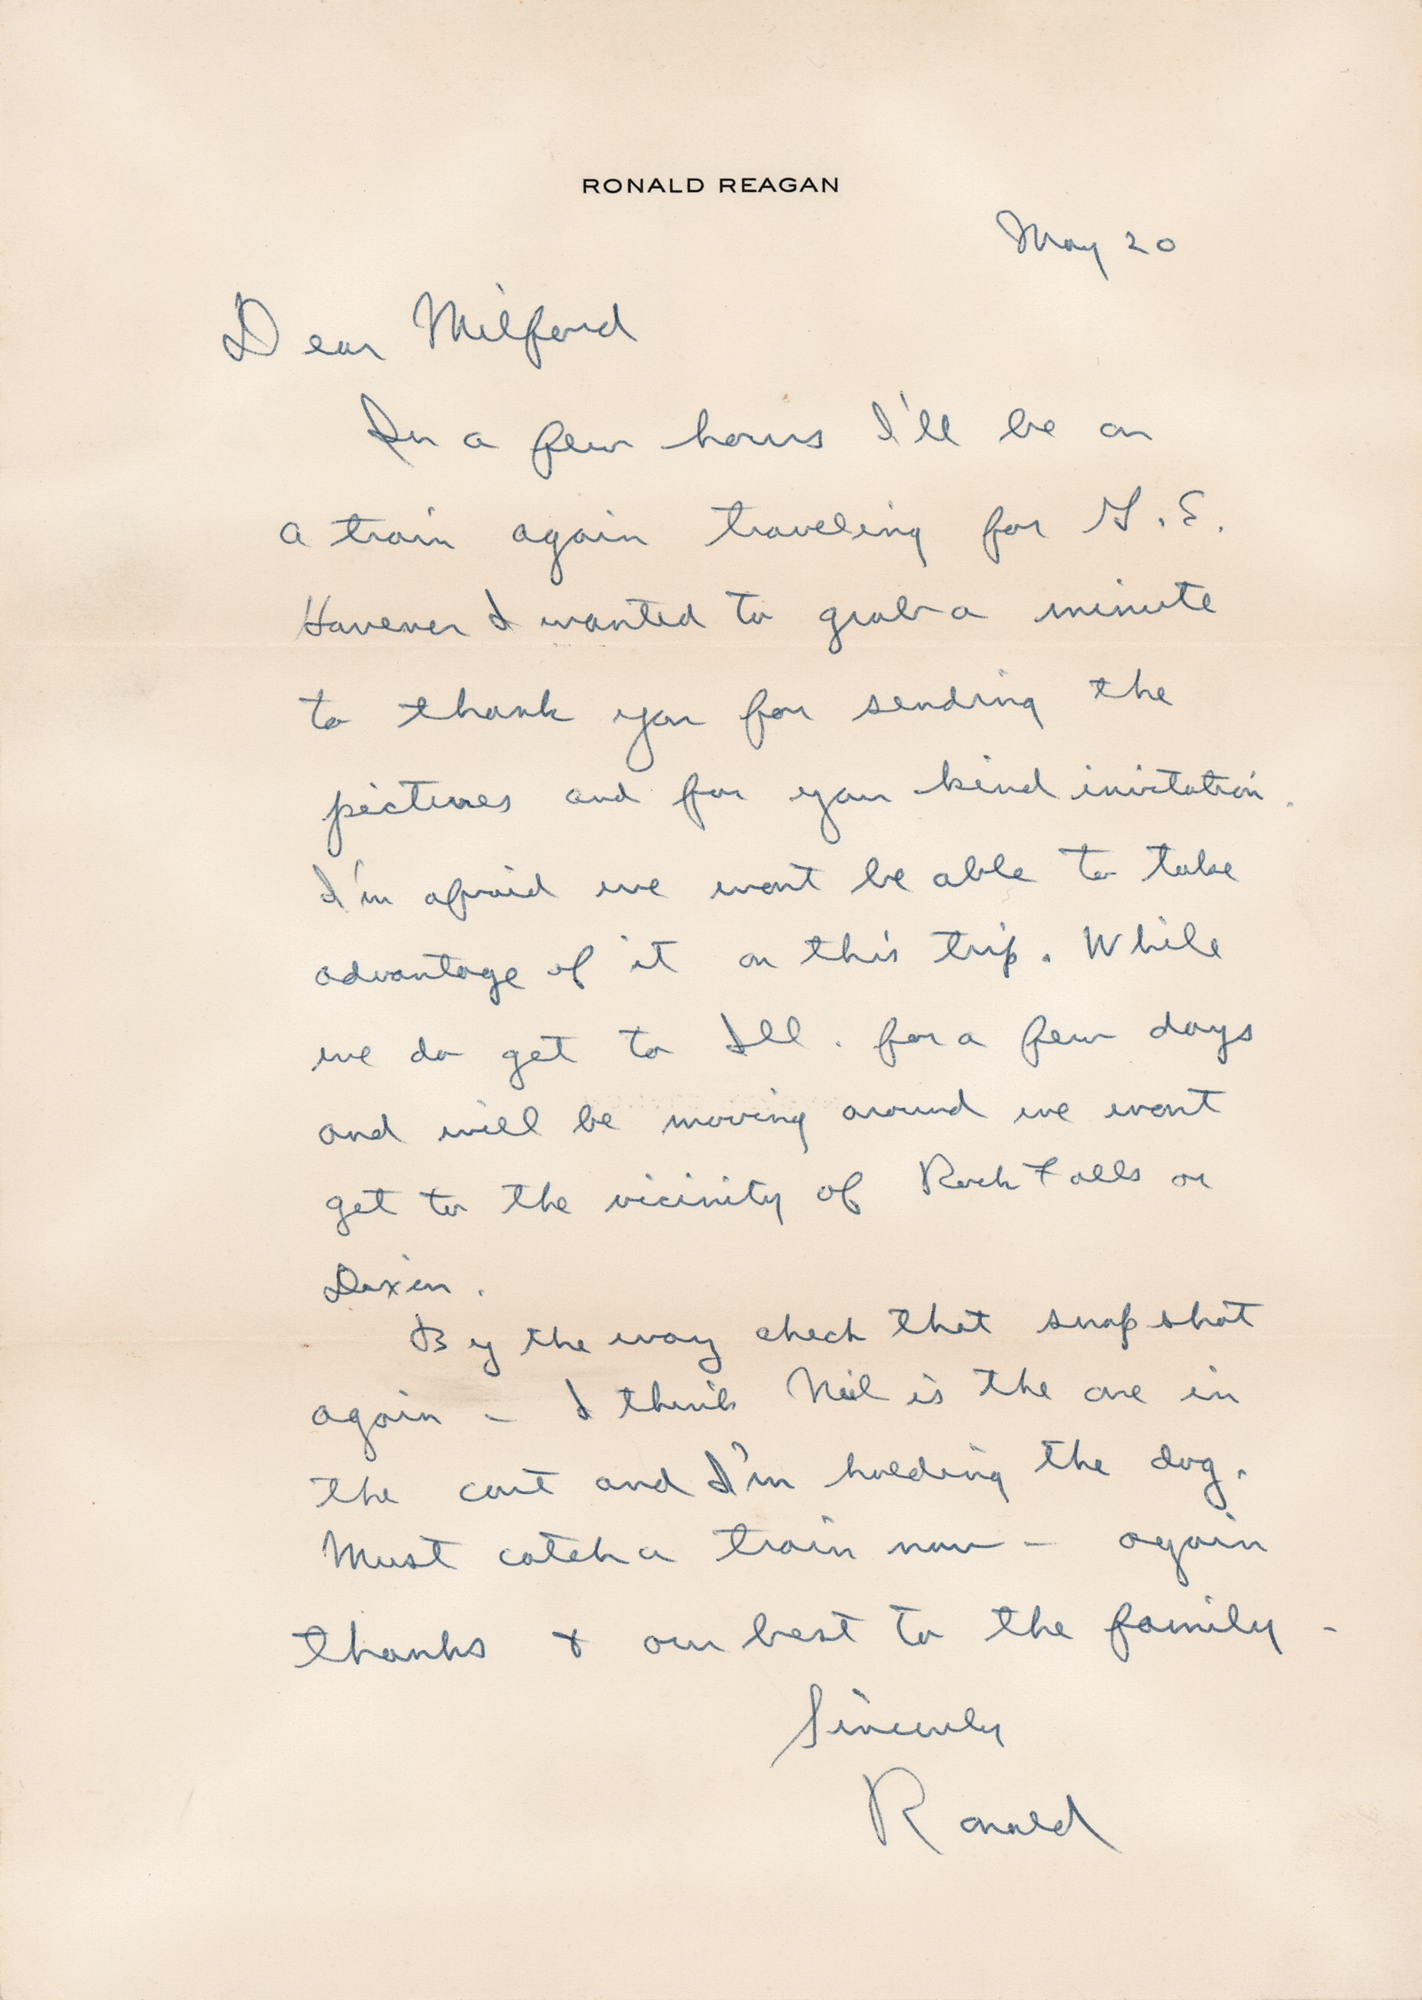 RONALD REAGAN
May 20
Dear Milford
In a few hours I'll be on
a train again traveling for G.E.
However I wanted to grab a minute
to thank you for sending the
pictures and for your kind invitation.
I'm afraid we wont be able to take
advantage of it on this trip. While
we do get to Ill. for a few days
and will be moving around we wont
get to the vicinity of Rock Falls or
Dixon.
By the way check that snapshot
again – I think Neil is the one in
the cart and I'm holding the dog.
Must catch a train now – again
thanks & our best to the family –
Sincerely
Ronald